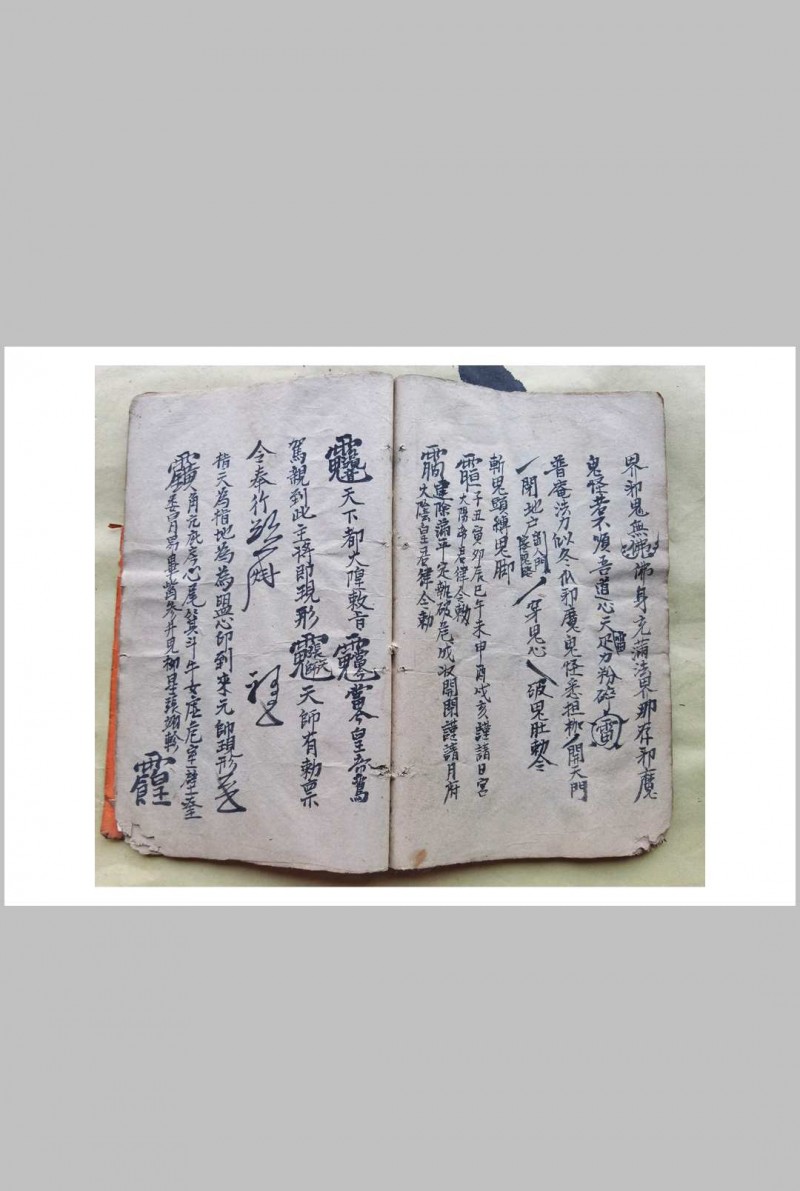 界邪鬼無佛佛身充蒲法界那存邪魔
鬼怪若不順吾道心天雷力粉碎雷
普庵法力似冬瓜邪魔鬼怪悉担柳開天門
閉地户 穿鬼心 破鬼肚勅令
斬鬼頭縛鬼脚
子丑寅卯辰巳午未申酉戌亥謹請日宮
太陽帝君律令勅
建除蒲平定執破危成収開閉謹請月府
太陰皇君律令勅
天下都大隍敕旨 當今皇帝駕
駕親到此主将即現形 天師有勅票
令奉行
指天為指地為為盟心印到宋元帥現形
角亢氐房心尾箕斗牛女虚危室壁奎
婁胃昴畢觜参井鬼柳星張翊軫